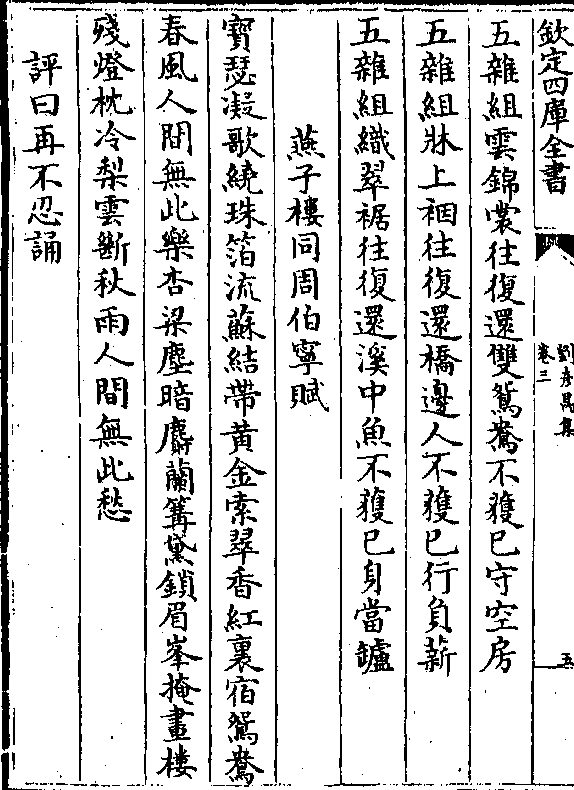 欽定四庫全書
劉彥昺集
卷三
五
五雜組雲錦裳往復還雙鴛鴦不獲已守空房
五雜組牀上裀往復還橋邊人不獲已行負薪
五雜組織翠裾往復還溪中魚不獲已身當鑪
燕子樓同周伯寧賦
寶瑟凝歌繞珠箔流蘇結帶黄金索翠香紅裏宿鴛鴦
春風人間無此樂杏梁塵暗麝蘭篝黛鎖眉峯掩畫樓
殘燈枕冷梨雲斷秋雨人間無此愁
評曰再不忍誦